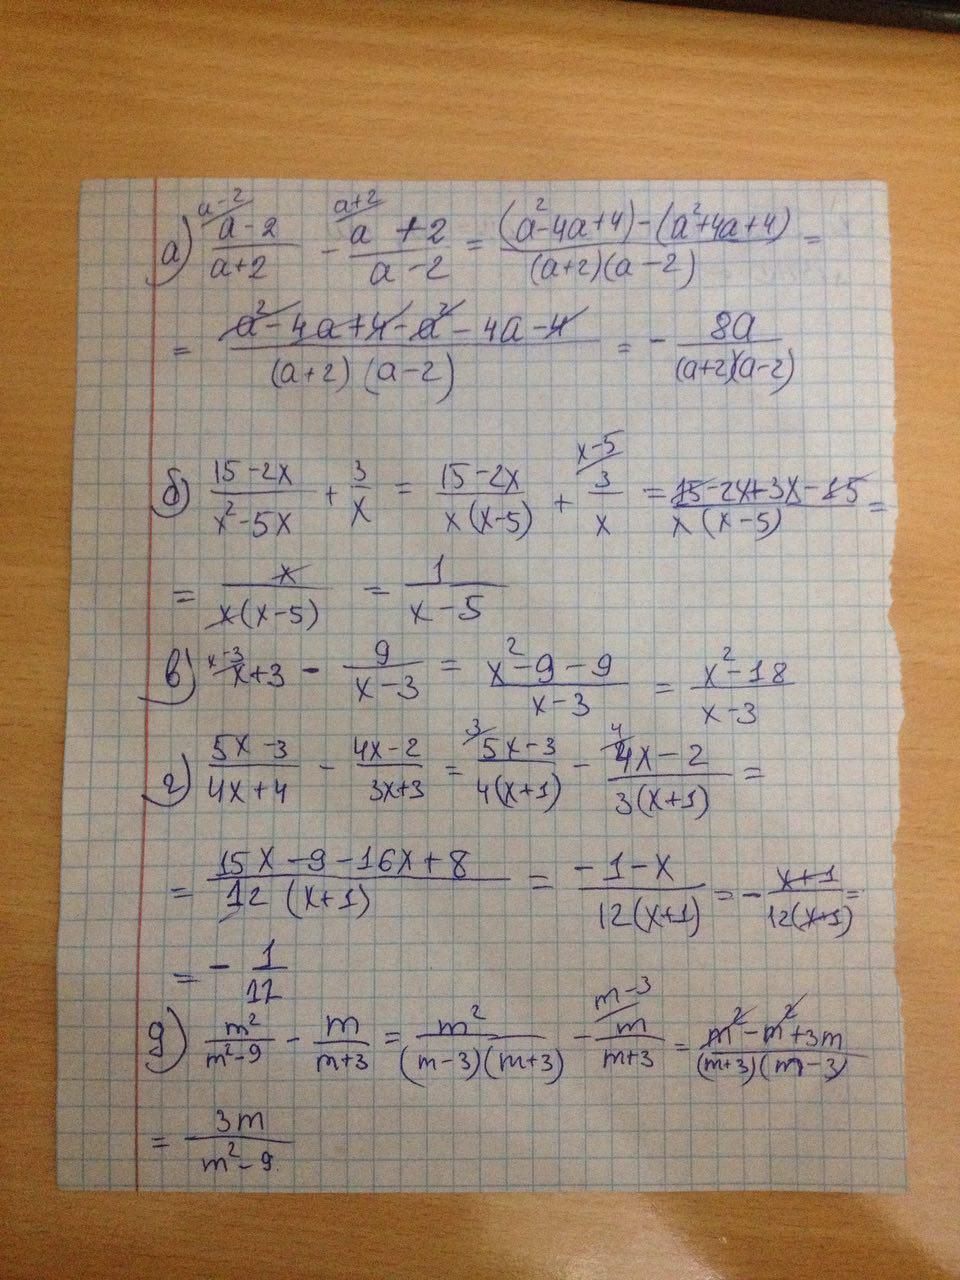 а) a-2/ (a-2)/(a+2) - a+2/ (a+2)/(a-2) = ((a²-4a+4)-(a²+4a+4))/((a+2)(a-2)) =
= (a²-4a+4-a²-4a-4)/((a+2)(a-2)) = - 8a/((a+2)(a-2))
б) (15-2x)/(x²-5x) + 3/x = (15-2x)/(x(x-5)) + x-5/ 3/x = (15-2x+3x-15)/(x(x-5)) =
= x/(x(x-5)) = 1/(x-5)
в) x-3/ x+3 - 9/(x-3) = (x²-9-9)/(x-3) = (x²-18)/(x-3)
г) (5x-3)/(4x+4) - (4x-2)/(3x+3) = 3/ (5x-3)/(4(x+1)) - 4/ (4x-2)/(3(x+1)) =
= (15x-9-16x+8)/(12(x+1)) = (-1-x)/(12(x+1)) = - (x+1)/(12(x+1)) =
= - 1/12
д) m²/(m²-9) - m/(m+3) = m²/((m-3)(m+3)) - m-3/ m/(m+3) = (m²-m²+3m)/((m+3)(m-3))
= 3m/(m²-9)